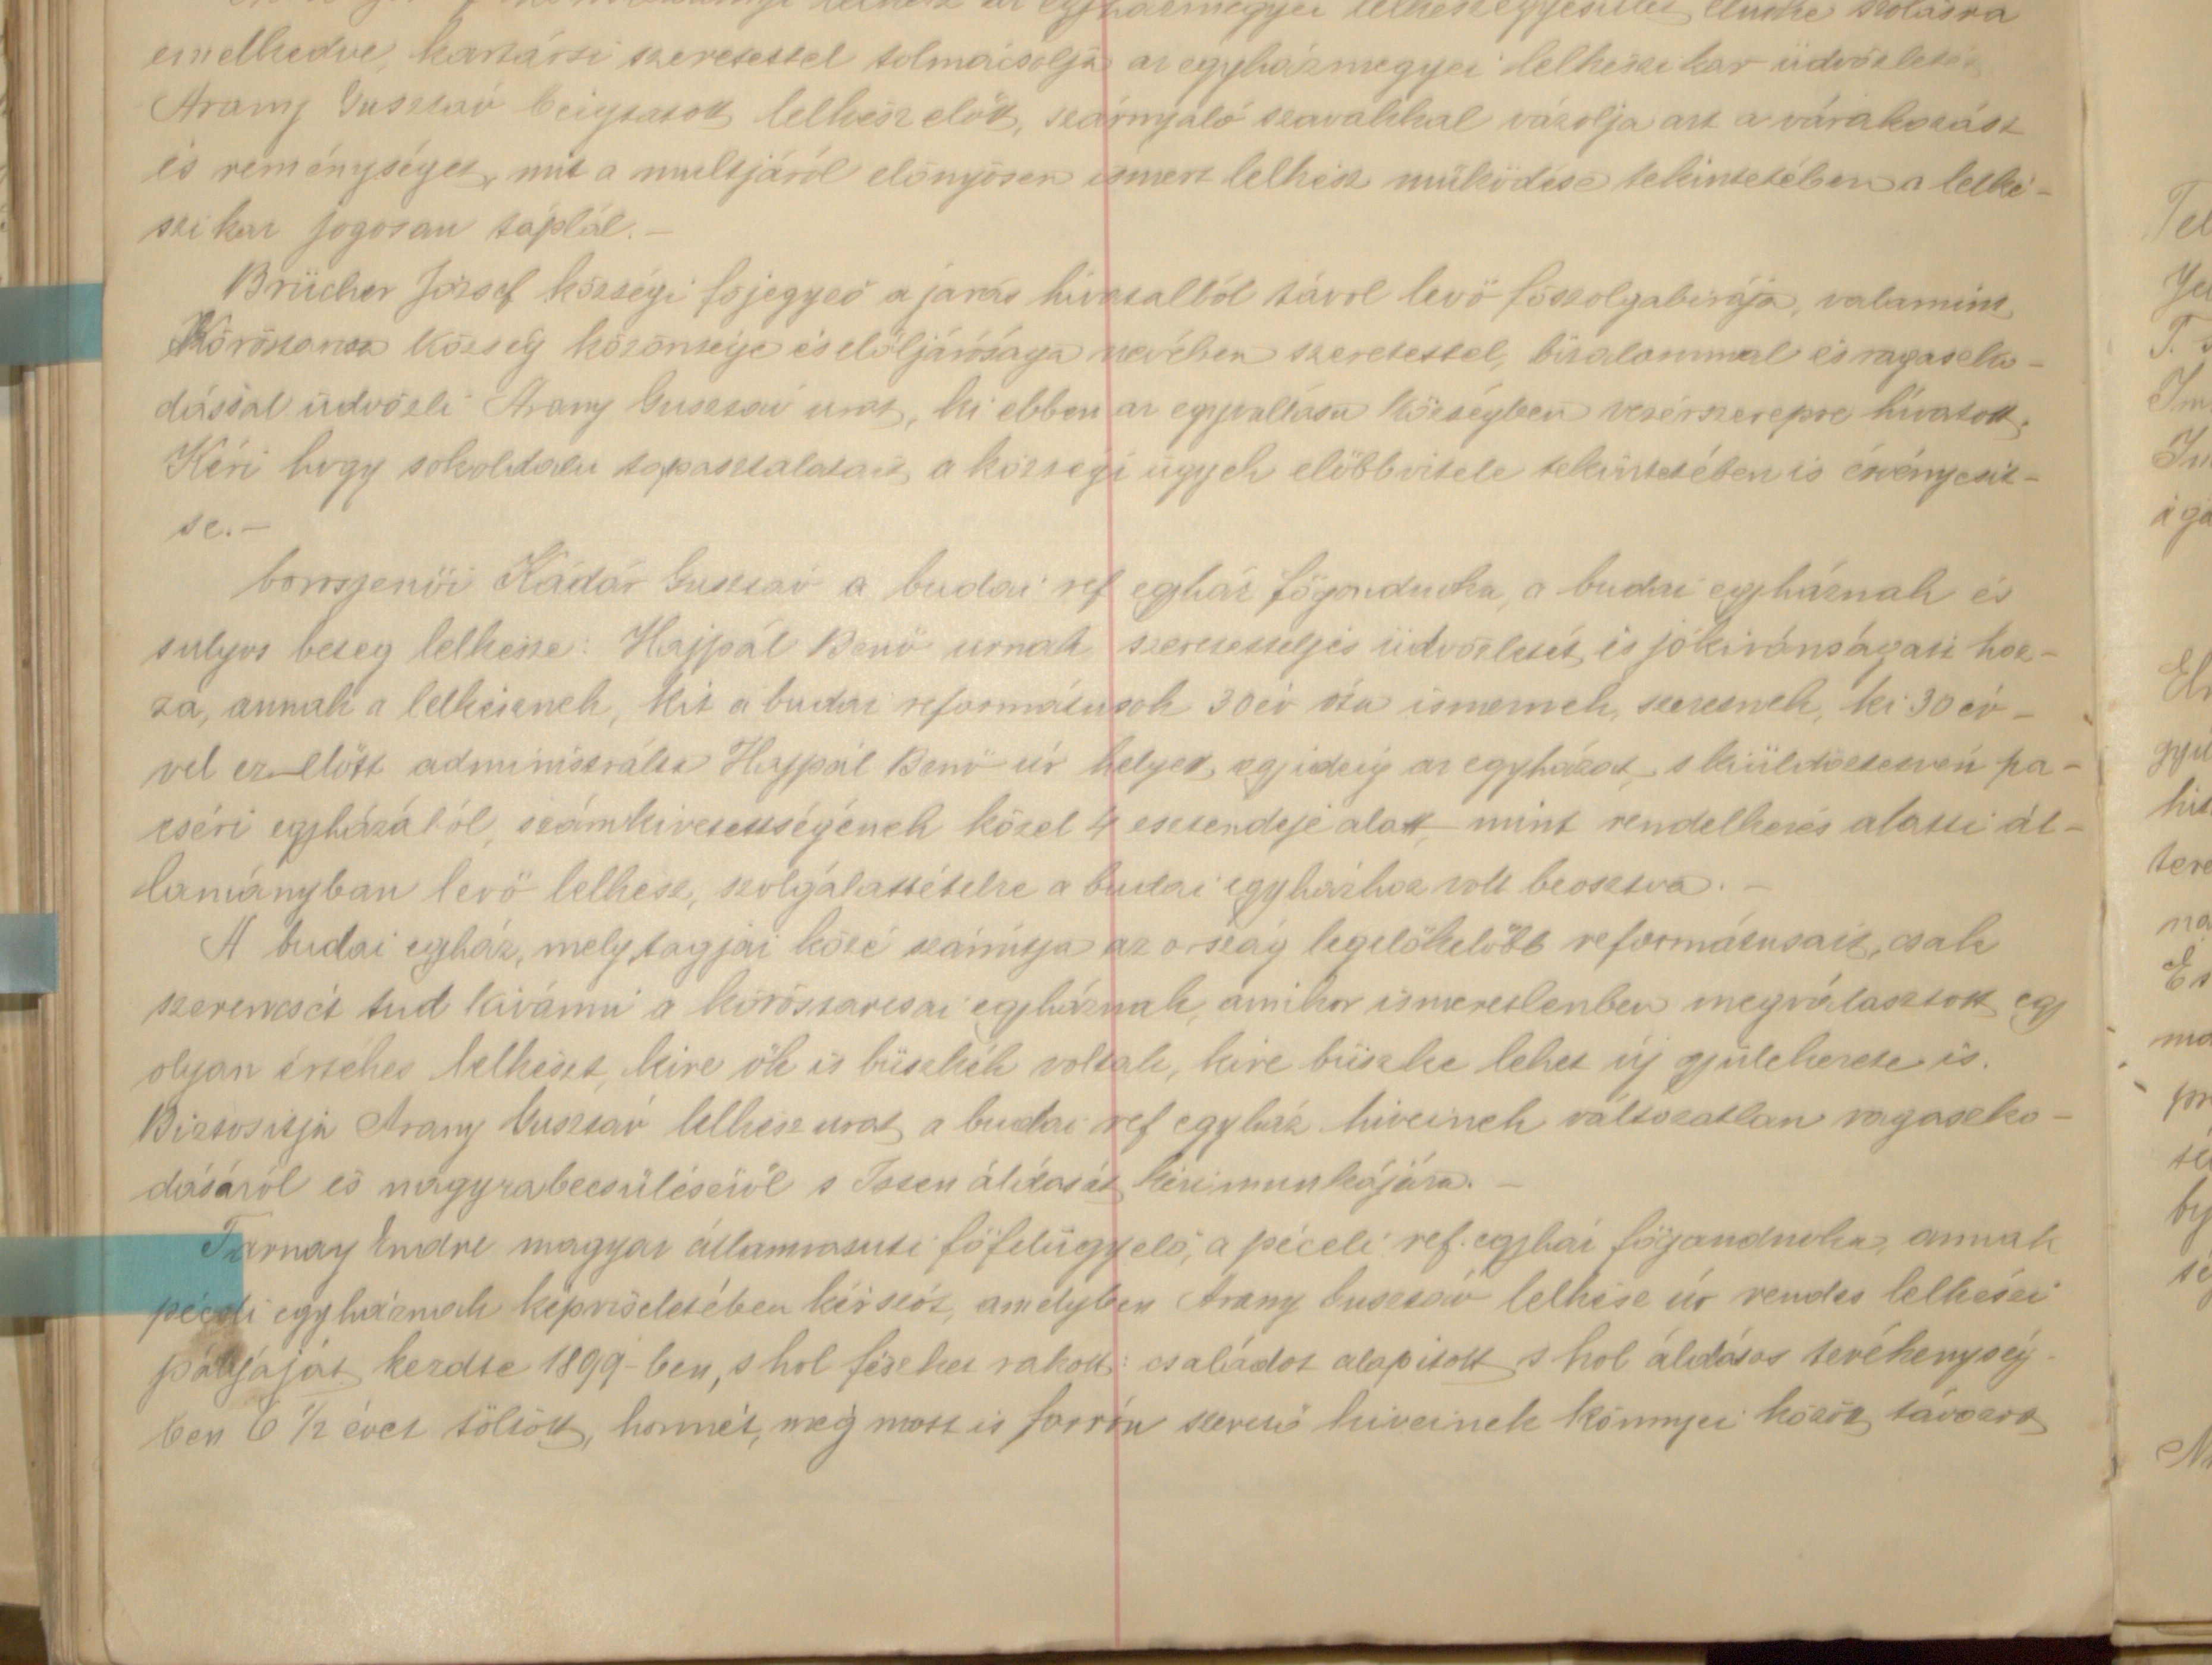 lelkész az egyházmegyei lelkészegyesület elnöke szólásra
emelkedve, kartársi szeretettel tolmácsolja az egyházmegyei lelkészi kar üdvözletét
Arany Gusztáv beigtatott lelkész előtt, szárnyaló szavakkal vázolja azt a várakozást
és reménységet, mit a multjáról előnyösen ismert lelkész müködése tekintetében a lelké-
szi kar jogosan táplál. —
Brücher József községi főjegyző a járás hivatalból távol levő főszolgabirája, valamint
Köröstarcsa község közönsége és elöljárósága nevében szeretettel, bizalommal és ragaszko-
dással üdvözli Arany Gusztáv urat, ki ebben az egyvallásu községben vezérszerepre hivatott.
Kéri hogy sokoldalu tapasztalatait a községi ügyek előbbvitele tekintetében is érvényesit-
se. —
borosjenői Kádár Gusztáv a budai ref egyház főgondnoka, a budai egyháznak és
sulyos beteg lelkésze: Hajpál Benő urnak szeretetteljes üdvözletét és jókivánságait hoz-
za, annak a lelkésznek, kit a budai reformátusok 30 év óta ismernek, szeretnek, ki 30 év-
vel ez előtt adminisztrálta Hajpál Benő úr helyett egy ideig az egyházat, s kiüldöztetvén pa-
cséri egyházából, számkivetettségének közel 4 esztendeje alatt, mint rendelkezés alatti ál-
lományban levő lelkész, szolgálattételre a budai egyházhoz volt beosztva. —
A budai egyház, mely tagjai közé számítja az ország legelőkelőbb reformátusait, csak
szerencsét tud kivánni a köröstarcsai egyháznak, amikor ismeretlenben megválasztott egy
olyan értékes lelkészt, kire ők is büszkék voltak, kire büszke lehet új gyülekezete is.
Biztosítja Arany Gusztáv lelkész urat a budai ref egyház hiveinek változatlan ragaszko-
dásáról és nagyrabecsüléséről s Isten áldását kéri munkájára. —
Tarnay Endre magyar államvasuti főfelügyelő, a péceli ref. egyház főgondnoka, annak
péceli egyháznak képviseletében kér szót, amelyben Arany Gusztáv lelkész úr rendes lelkészi
pályáját kezdte 1899-ben, s hol fészket rakott: családot alapított s hol áldásos tevékenység-
ben 6 1/2 évet töltött, honnét, még most is forrón szerető hiveinek könnyei között távozott